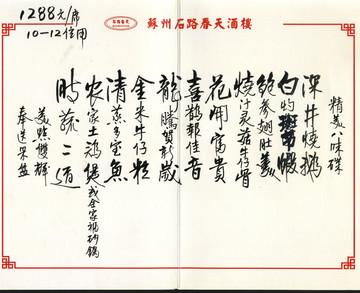 1288元/席
10-12信用
蘇州石路春天酒樓
精美八味碟
深井燒鵝
白灼蝦
鮑參翅肚羹
燒汁灵菇牛仔骨
花開富貴
喜鵲報佳音
龍騰賀新歲
金米牛仔粒
清蒸多宝魚
农家土鸡煲或全家福砂鍋
時蔬二道
美點雙輝
奉送果盤